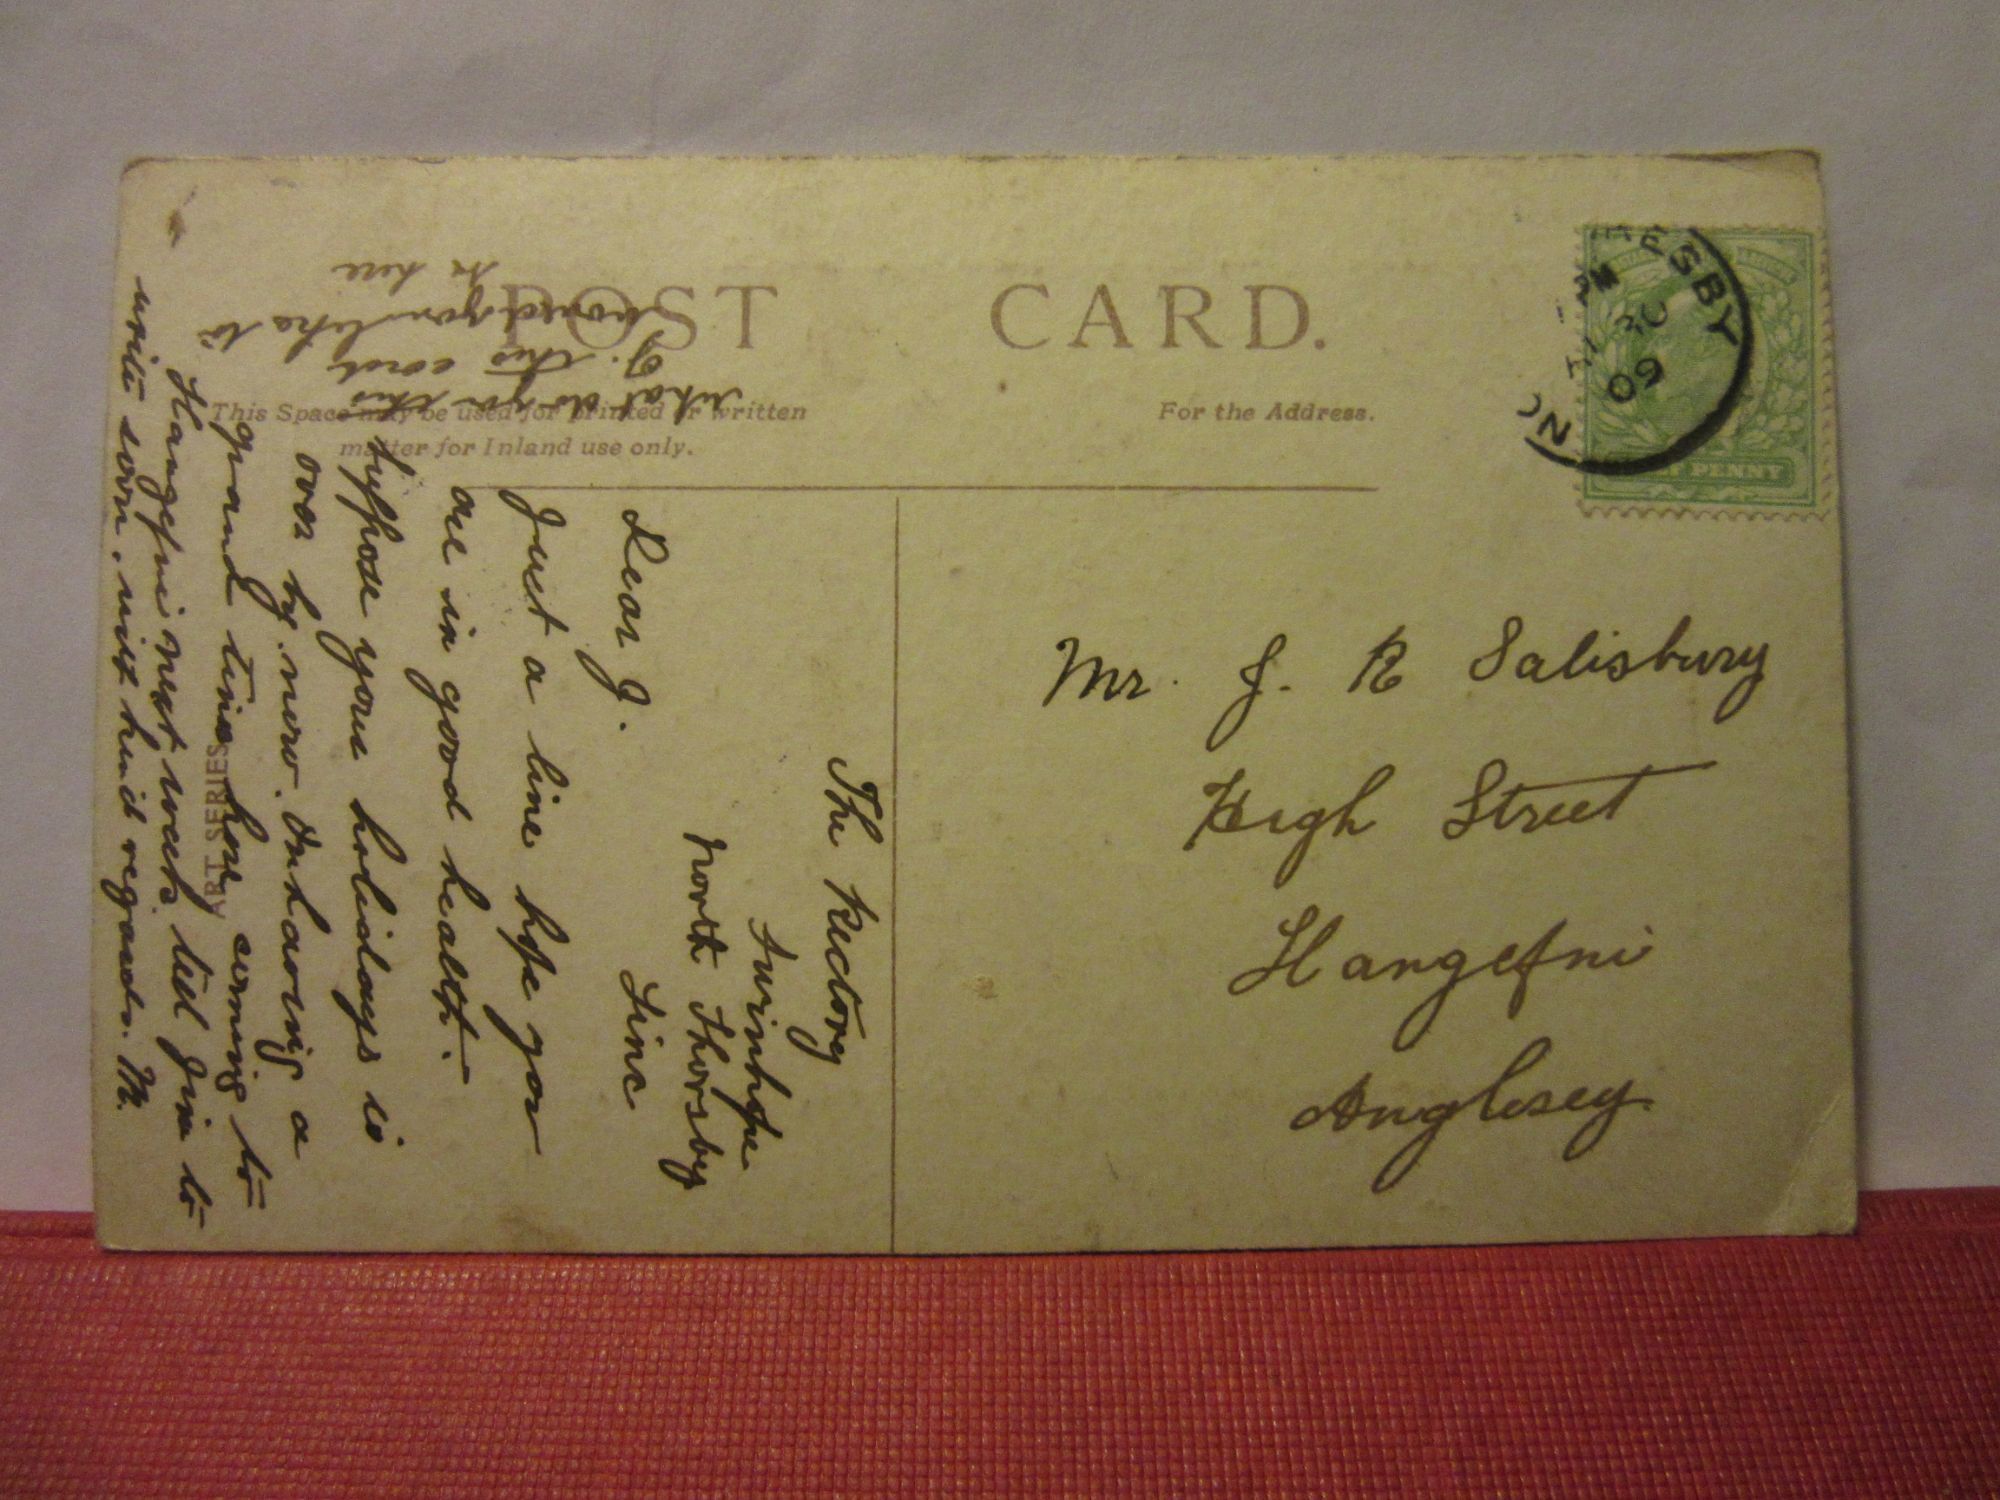 POST CARD.
This Space may be used for printed or written
matter for Inland use only.
For the Address.
HALF PENNY
ESBY
PM
09
Mr. J. R Salisbury
High Street
Llangefni
Anglesey
The Rectory
Swinhope
North Thorsby
Linc
Dear J.
Just a line hope you
are in good health.
Suppose your holidays is
over by now. In having a
grand time here coming to
Llangefni next week tell Jim to
write soon. with kind regards. M.
ART SERIES
what do you this
of this card
would you like to
be here